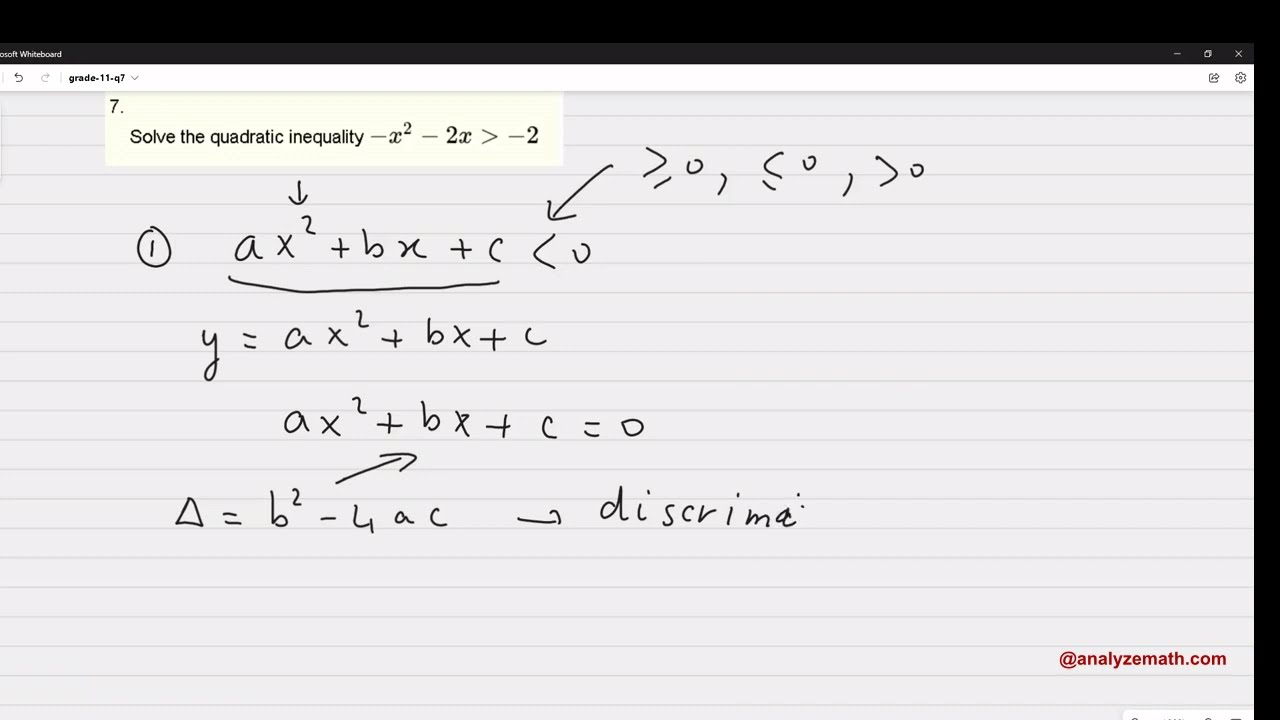 osoft Whiteboard
grade-11-q7
7.
Solve the quadratic inequality −x² − 2x > −2
≥0, ≤0, >0
① ax² + bx + c < 0
y = ax² + bx + c
ax² + bx + c = 0
Δ = b² − 4ac → discrima
@analyzemath.com